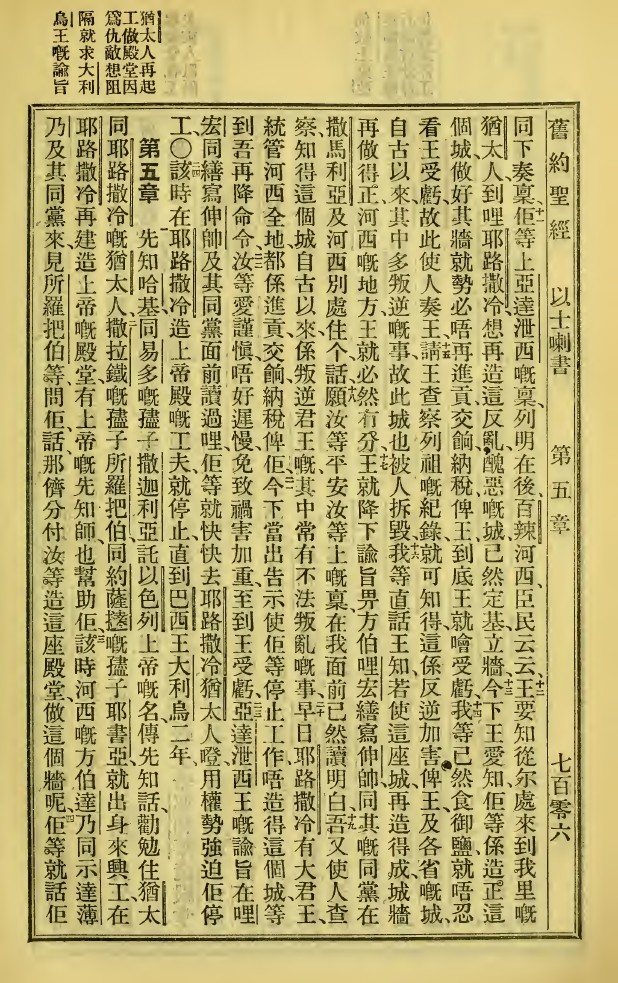 舊約聖經 以士喇書 第五章 七百零六
同下奏稟、十一佢等上亞達泄西嘅稟、列明在後、百辣河西、臣民云云、十二王要知從尔處來到我里嘅
猶太人到哩耶路撒冷想再造這反亂醜惡嘅城已然定基立牆、十三今下王愛知佢等係造正這
個城做好其牆就勢必唔再進貢交餉納稅俾王到底王就噲受虧、十四我等已然食御鹽就唔忍
看王受虧、故此使人奏王、十五請王查察列祖嘅紀錄就可知得這係反逆加害俾王及各省嘅城、
自古以來、其中多叛逆嘅事、故此城也被人拆毀、十六我等直話王知、若使這座城再造得成、城牆
再做得正、河西嘅地方王就必然冇分、十七王就降下諭旨畀方伯哩宏繕寫伸帥同其嘅同黨在
撒馬利亞及河西別處住个話、願汝等平安、十八汝等上嘅稟在我面前已然讀明白、十九吾又使人查
察知得這個城自古以來係叛逆君王嘅、其中常有不法叛亂嘅事、二十早日耶路撒冷有大君王、
統管河西全地、都係進貢交餉納稅俾佢、二一今下當出告示使佢等停止工作、唔造得這個城、等
到吾再降命令、二二汝等愛謹慎、唔好遲慢、免致禍害加重、至到王受虧、二三亞達泄西王嘅諭旨在哩
宏同繕寫伸帥及其同黨面前讀過哩佢等就快快去耶路撒冷猶太人嗰用權勢強迫佢停
工、〇二四該時在耶路撒冷造上帝殿嘅工夫就停止直到巴西王大利烏二年、
第五章 一先知哈基同易多嘅孻子撒迦利亞託以色列上帝嘅名傳先知話勸勉住猶太
同耶路撒冷嘅猶太人、二撒拉鐵嘅孻子所羅把伯同約薩撻嘅孻子耶書亞就出身來興工在
耶路撒冷再建造上帝嘅殿堂、有上帝嘅先知師也幫助佢、三該時河西嘅方伯達乃同示達薄
乃及其同黨來見所羅把伯等問佢話、那儕分付汝等造這座殿堂、做這個牆呢、四佢等就話佢
猶太人再起
工做殿堂因
為仇敵想阻
隔就求大利
烏王嘅諭旨